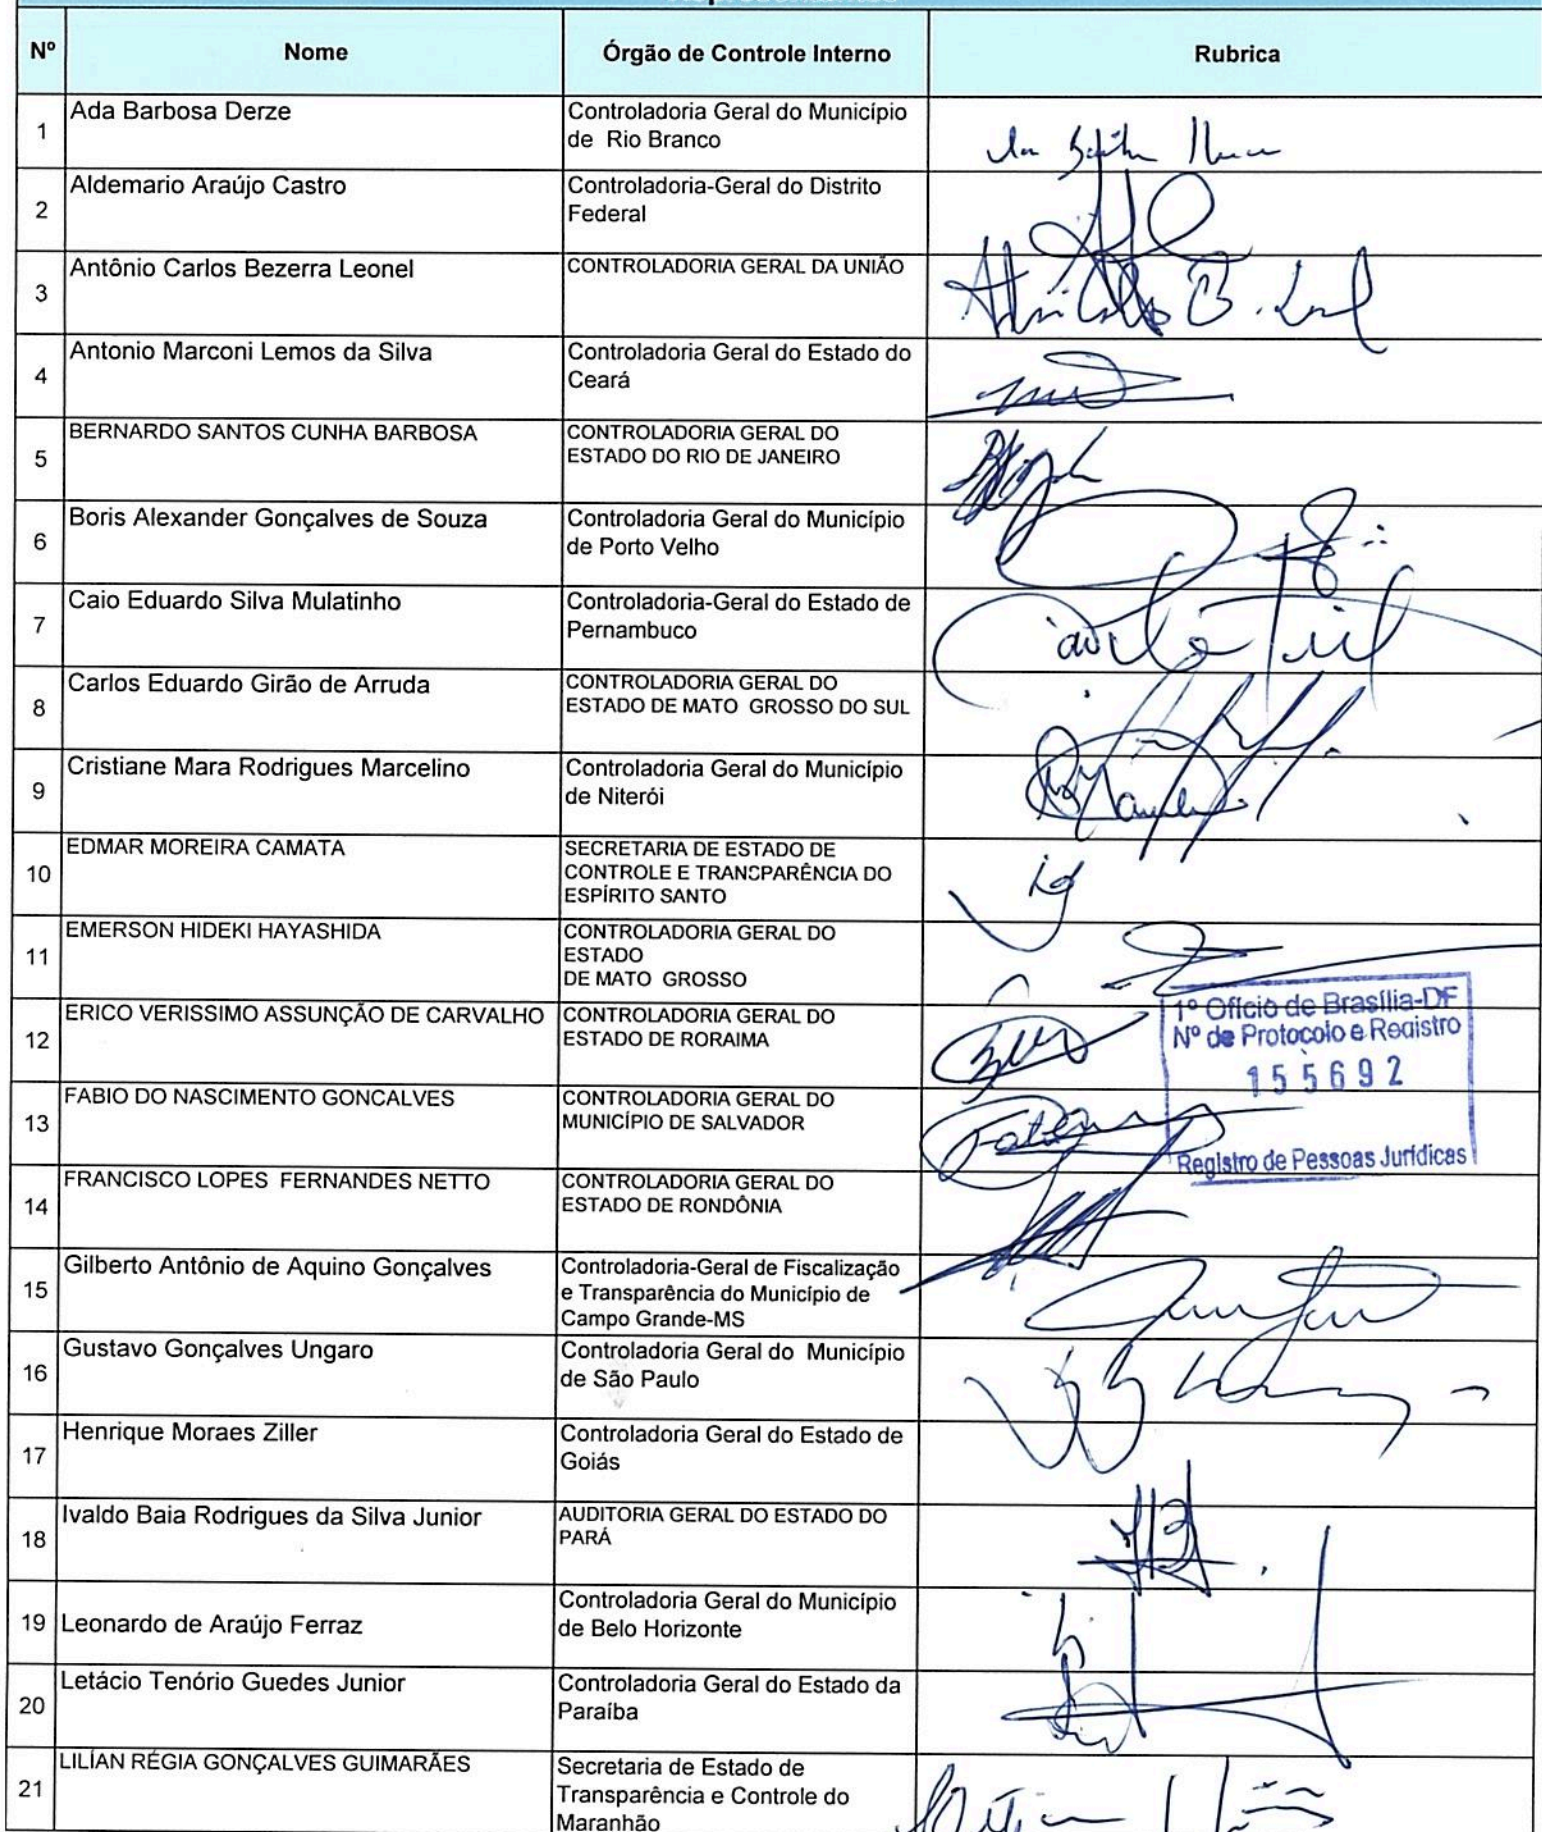 Nº Nome Órgão de Controle Interno Rubrica
1 Ada Barbosa Derze Controladoria Geral do Município
de Rio Branco
2 Aldemario Araújo Castro Controladoria-Geral do Distrito
Federal
3 Antônio Carlos Bezerra Leonel CONTROLADORIA GERAL DA UNIÃO
4 Antonio Marconi Lemos da Silva Controladoria Geral do Estado do
Ceará
5 BERNARDO SANTOS CUNHA BARBOSA CONTROLADORIA GERAL DO
ESTADO DO RIO DE JANEIRO
6 Boris Alexander Gonçalves de Souza Controladoria Geral do Município
de Porto Velho
7 Caio Eduardo Silva Mulatinho Controladoria-Geral do Estado de
Pernambuco
8 Carlos Eduardo Girão de Arruda CONTROLADORIA GERAL DO
ESTADO DE MATO GROSSO DO SUL
9 Cristiane Mara Rodrigues Marcelino Controladoria Geral do Município
de Niterói
10 EDMAR MOREIRA CAMATA SECRETARIA DE ESTADO DE
CONTROLE E TRANSPARÊNCIA DO
ESPÍRITO SANTO
11 EMERSON HIDEKI HAYASHIDA CONTROLADORIA GERAL DO
ESTADO
DE MATO GROSSO
12 ERICO VERISSIMO ASSUNÇÃO DE CARVALHO CONTROLADORIA GERAL DO
ESTADO DE RORAIMA
1º Ofício de Brasília-DF
Nº de Protocolo e Registro
155692
Registro de Pessoas Jurídicas
13 FABIO DO NASCIMENTO GONCALVES CONTROLADORIA GERAL DO
MUNICÍPIO DE SALVADOR
14 FRANCISCO LOPES FERNANDES NETTO CONTROLADORIA GERAL DO
ESTADO DE RONDÔNIA
15 Gilberto Antônio de Aquino Gonçalves Controladoria-Geral de Fiscalização
e Transparência do Município de
Campo Grande-MS
16 Gustavo Gonçalves Ungaro Controladoria Geral do Município
de São Paulo
17 Henrique Moraes Ziller Controladoria Geral do Estado de
Goiás
18 Ivaldo Baia Rodrigues da Silva Junior AUDITORIA GERAL DO ESTADO DO
PARÁ
19 Leonardo de Araújo Ferraz Controladoria Geral do Município
de Belo Horizonte
20 Letácio Tenório Guedes Junior Controladoria Geral do Estado da
Paraíba
21 LILÍAN RÉGIA GONÇALVES GUIMARÃES Secretaria de Estado de
Transparência e Controle do
Maranhão